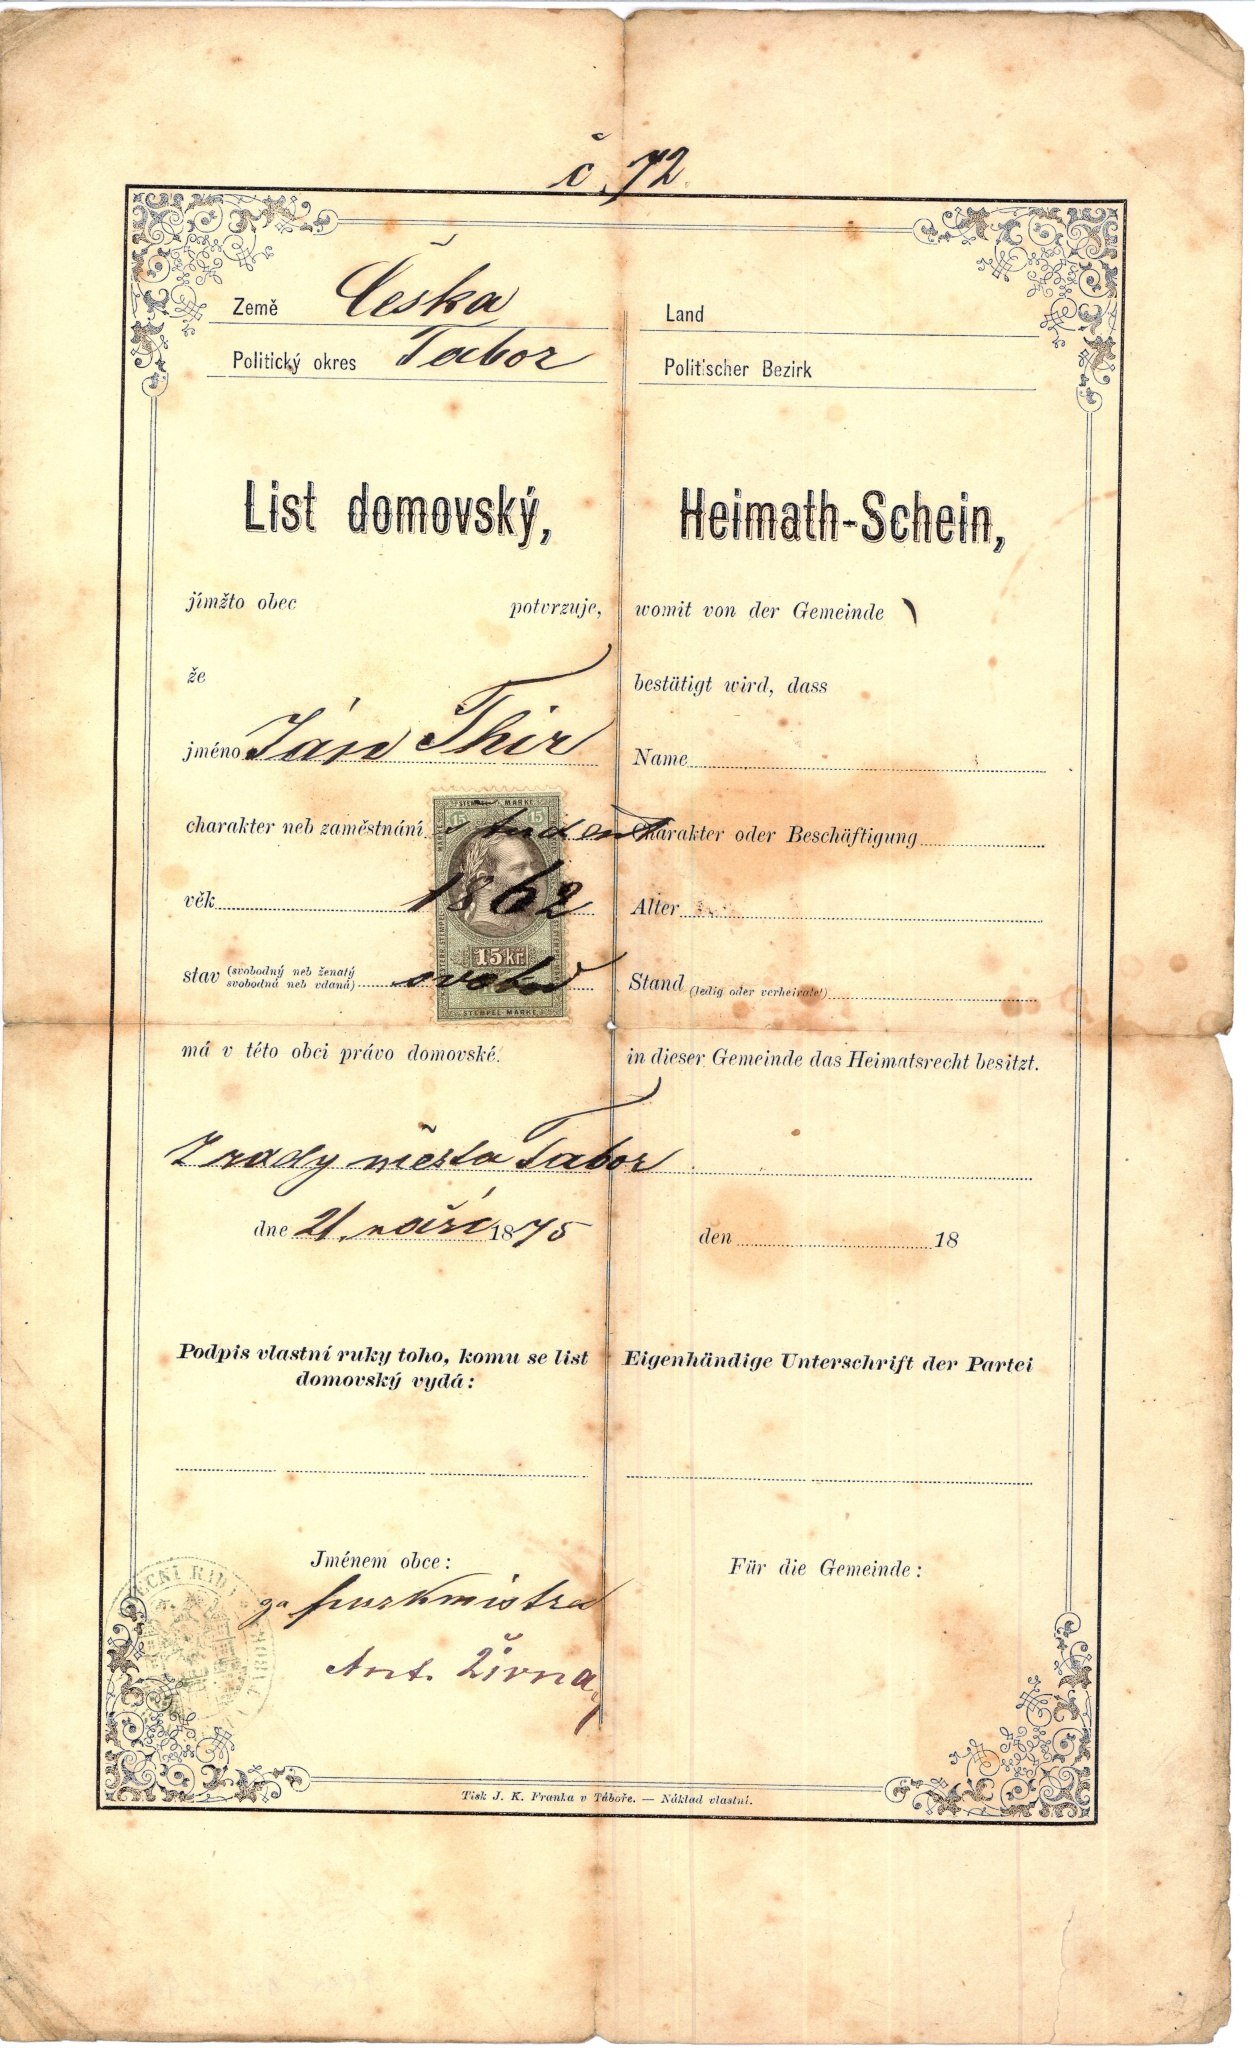 č. 72
Země Česka
Politický okres Tabor
List domovský,
jímžto obec potvrzuje,
že
jméno Ján Thir
charakter neb zaměstnání student
věk 1862
stav (svobodný neb ženatý
svobodná neb vdaná) svobod
má v této obci právo domovské.
Z rady města Tabor
dne 21. září 1875
Podpis vlastní ruky toho, komu se list
domovský vydá:
Jménem obce:
za purkmistra
Ant. Živný
Land
Politischer Bezirk
Heimath-Schein,
womit von der Gemeinde
bestätigt wird, dass
Name
Charakter oder Beschäftigung
Alter
Stand (ledig oder verheiratet)
in dieser Gemeinde das Heimatsrecht besitzt.
den 18
Eigenhändige Unterschrift der Partei
Für die Gemeinde:
STEMPEL MARKE
15 15
15 kr.
STEMPEL MARKE
Tisk J. K. Franka v Táboře. — Náklad vlastní.